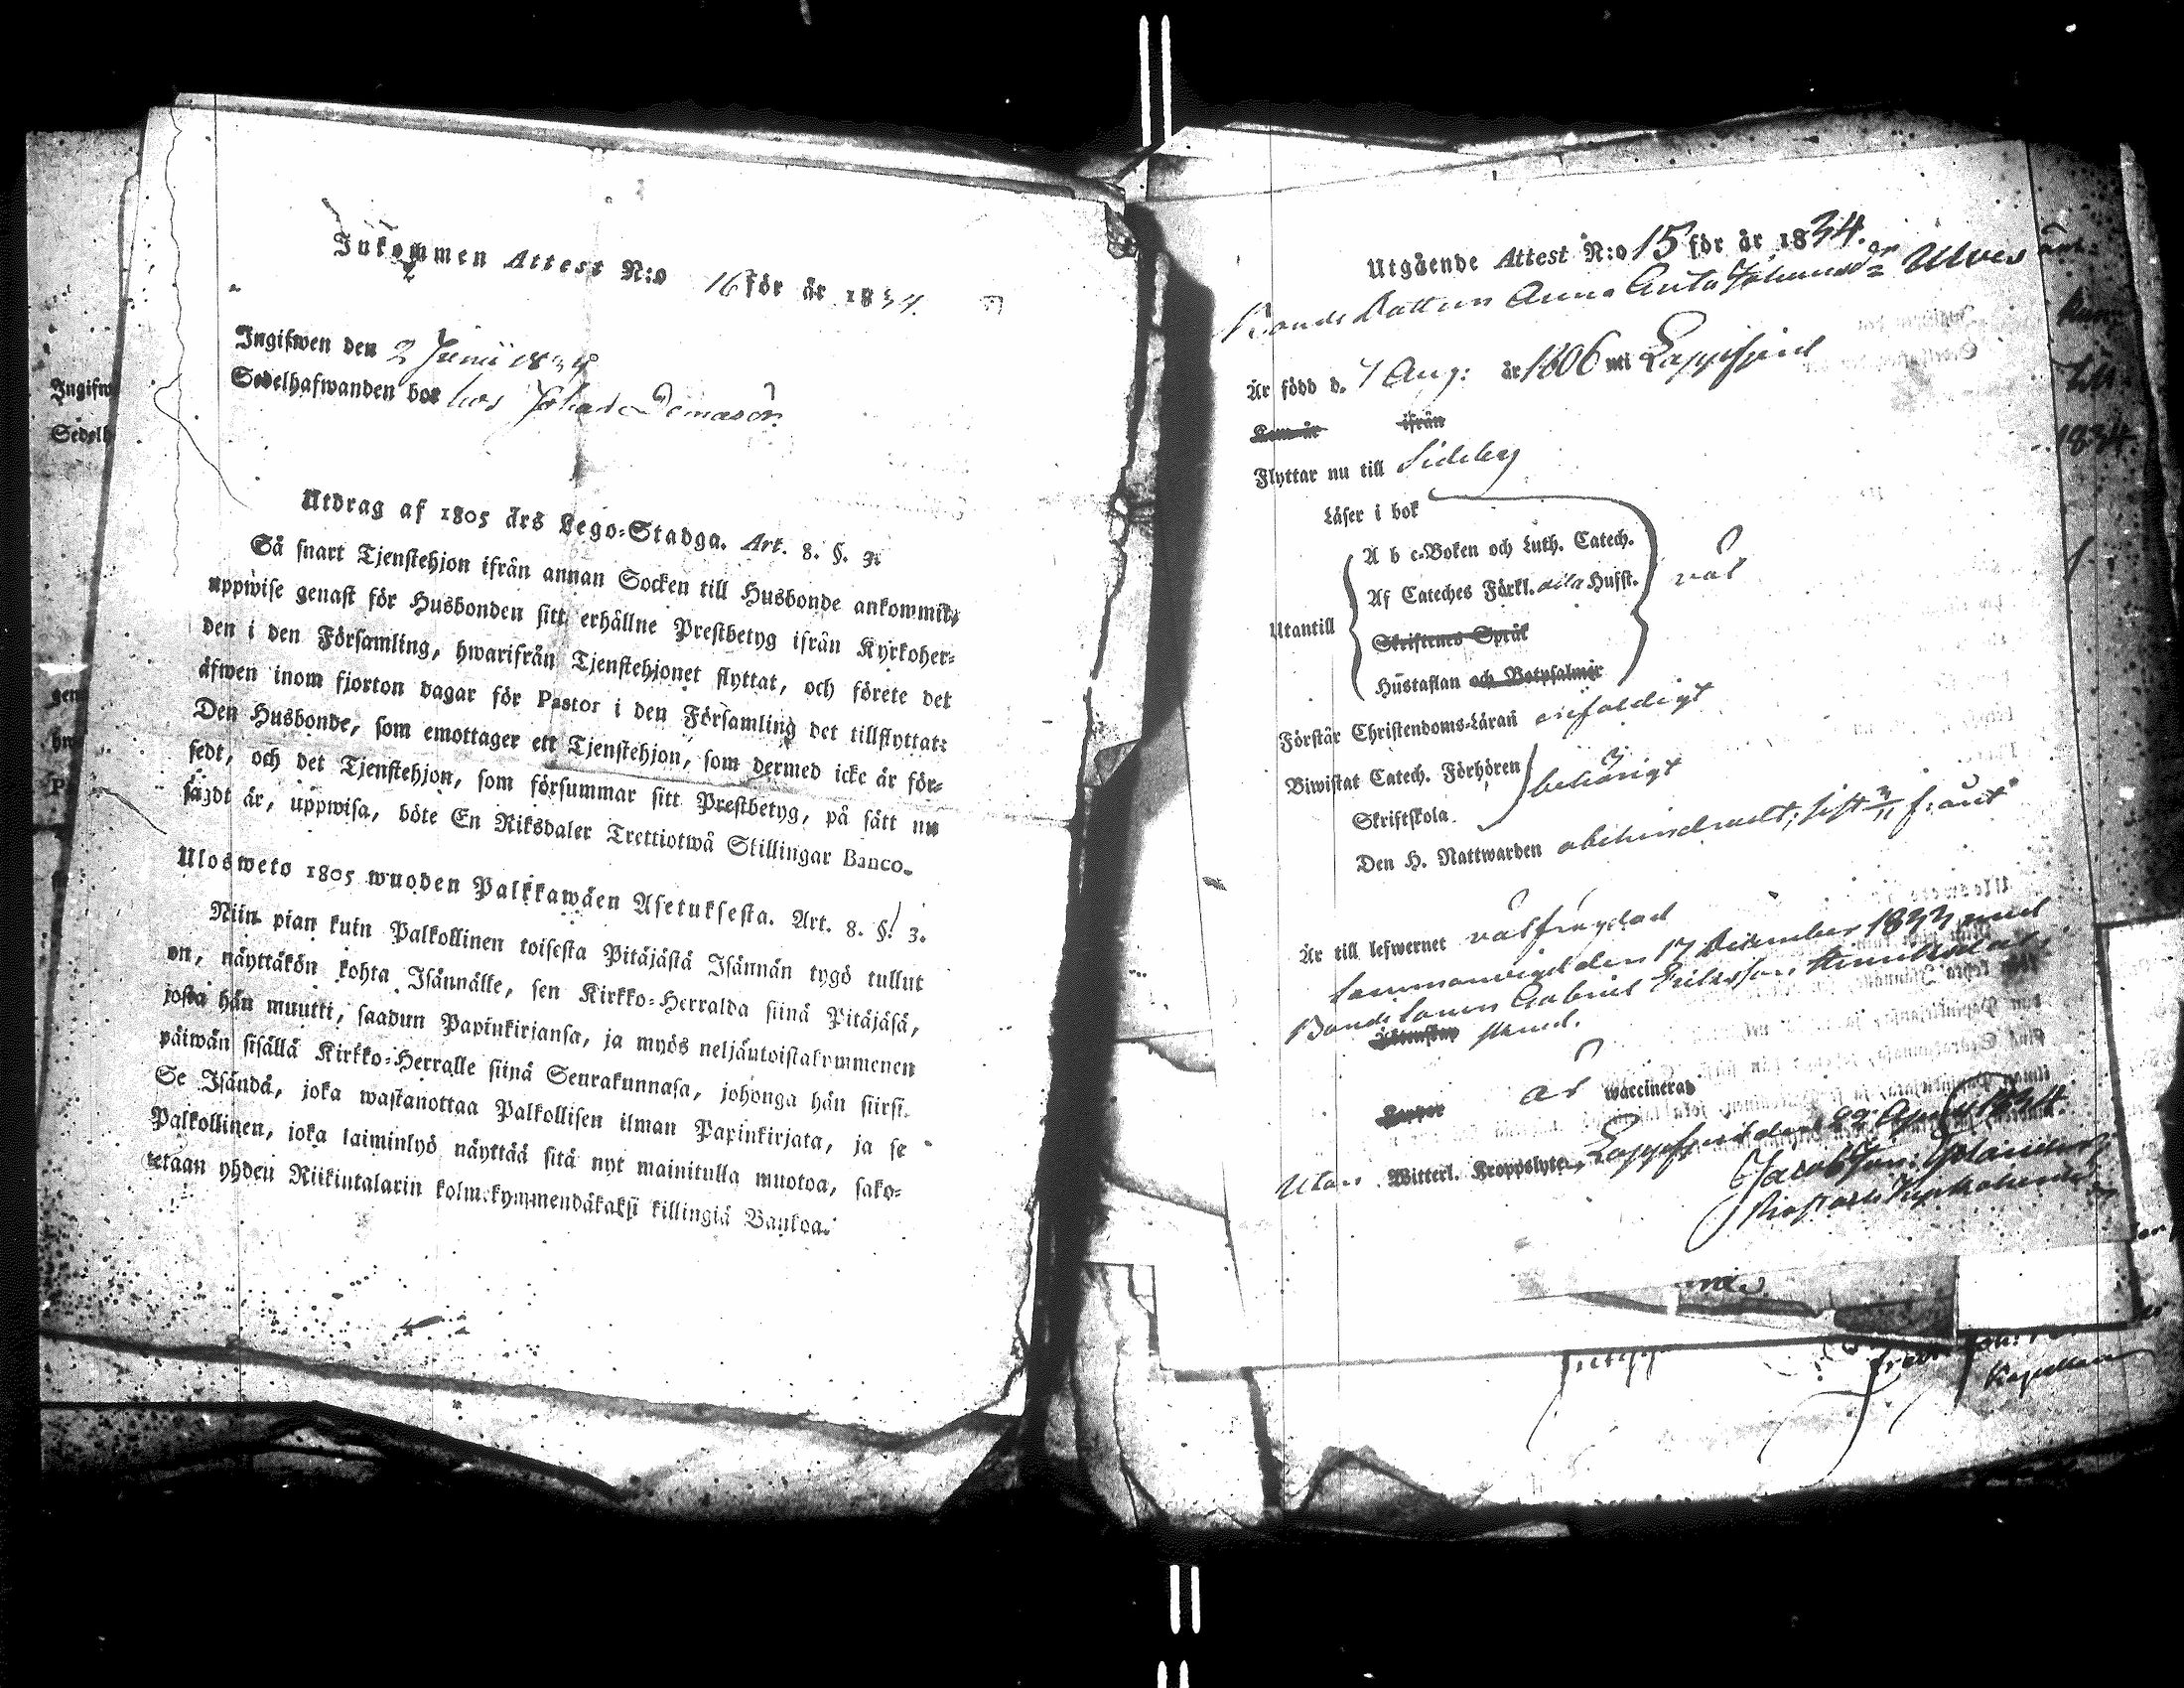 Inkommen Attest N:o 16 för år 1834.
Ingifwen den 2 Junii 1834
Sedelhafwanden bor hos
Utdrag af 1805 års Lego-Stadga. Art. 8. §. 3.
Så snart Tjenstehjon ifrån annan Socken till Husbonde ankommit,
uppwise genast för Husbonden sitt erhållne Prestbetyg ifrån Kyrkoher-
den i den Församling, hwarifrån Tjenstehjonet flyttat, och förete det
äfwen inom fjorton dagar för Pastor i den Församling det tillflyttat:
Den Husbonde, som emottager ett Tjenstehjon, som dermed icke är för-
sedt, och det Tjenstehjon, som försummar sitt Prestbetyg, på sätt nu
sagdt är, uppwisa, böte En Riksdaler Trettiotwå Skillingar Banco.
Ulosweto 1805 wuoden Palkkawäen Asetuksesta. Art. 8. §. 3.
Niin pian kuin Palkollinen toisesta Pitäjästä Isännän tygö tullut
on, näyttäkön kohta Isännälle, sen Kirkko-Herralda siinä Pitäjäsä,
josta hän muutti, saadun Papinkirjansa, ja myös neljäntoistakymmenen
päiwän sisällä Kirkko-Herralle siinä Seurakunnasa, johonga hän siirsi.
Se Isändä, joka wastanottaa Palkollisen ilman Papinkirjata, ja se
Palkollinen, joka laiminlyö näyttää sitä nyt mainitulla muotoa, sako-
tetaan yhden Riikintalarin kolmekymmendäkaksi killingiä Bankoa.
Utgående Attest N:o 15 för år 1834.
Bonde Dottren Anna Greta Johansdr Ulves
Är född d. 7 Aug: år 1806 uti Lappfjerd
Kom år ifrån
Flyttar nu till Sideby
Läser i bok
A b c-Boken och Luth. Catech.
Af Cateches Förkl. Husst. väl
Utantill
Skriftenes Språk
Hustaflan och Botpsalmer
Förstår Christendoms-Läran enfaldigt
Biwistat Catech. Förhören behörigt
Skriftskola
Den H. Nattwarden obehindradt, sist
Är till lefwernet välfrägdad
Sammanvigd den 17 December 1833 med
Bonde Sonen Gabriel Eriksson
Äktenskap
är waccinerad
Utan Witterl. Kroppslyte, Lappfjerd den April 1834.
Jacob